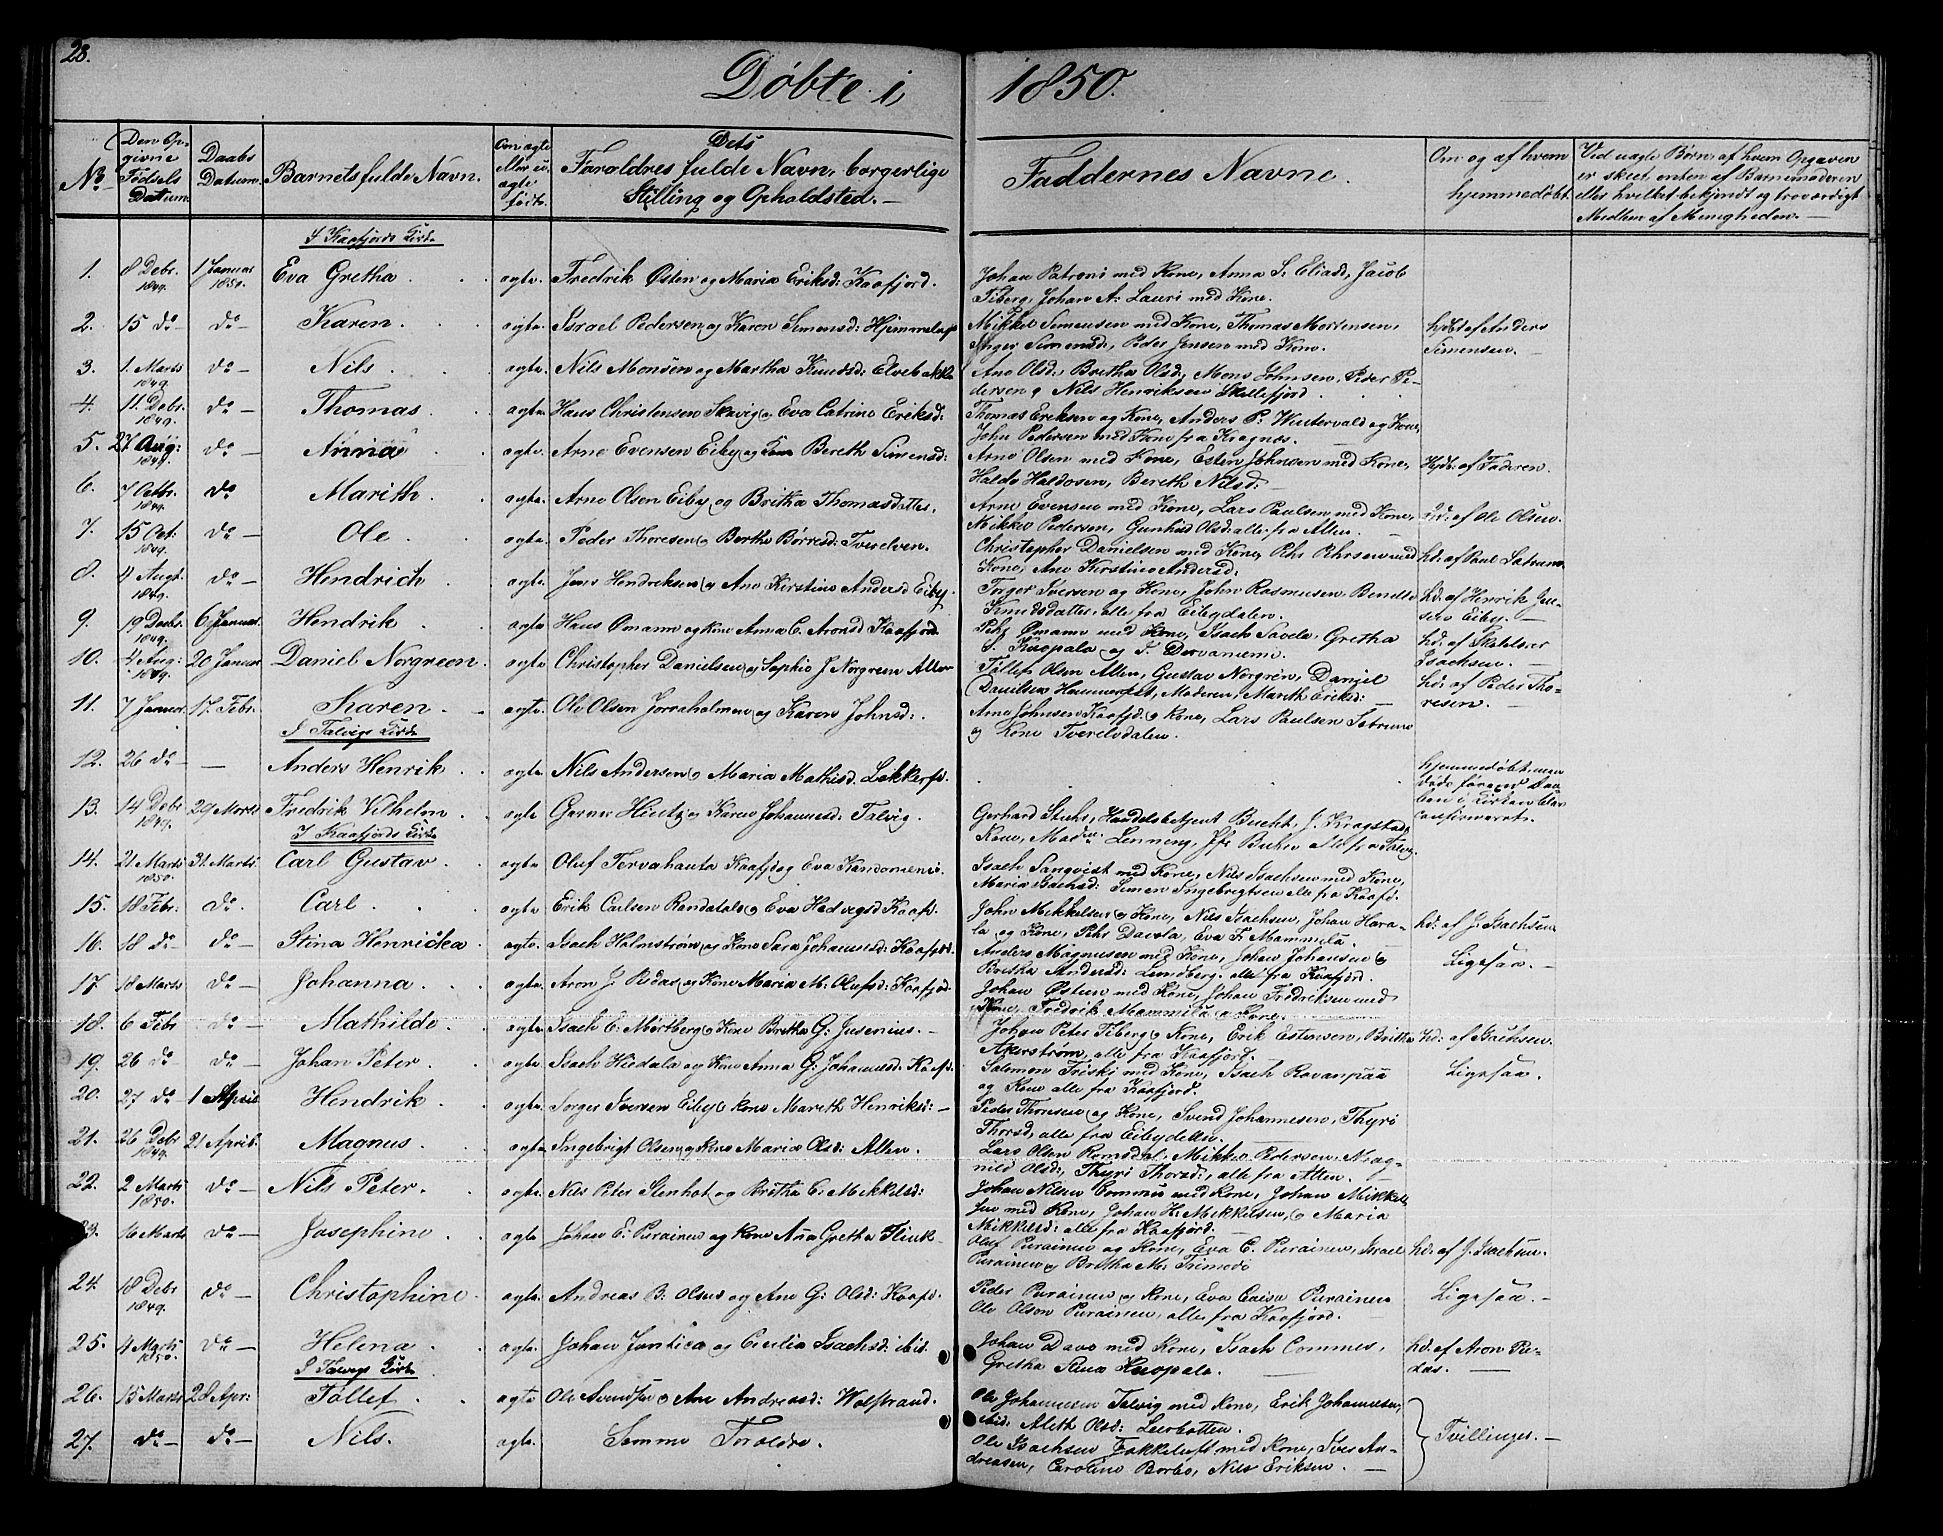 28.
Døbte i 1850.
No
Den Opgivne Fødsels Datum
Daabs Datum.
Barnets fulde Navn.
Om ægte eller uægte født.
Dets Forældres fulde Navn, borgerlige Stilling og Opholdsted.
Faddernes Navne.
Om og af hvem hjemmedøbt.
Ved uægte Børn, af hvem Opgaven er skeet, enten af Barnemoderen eller hvilket bekjendt og troværdigt Medlem af Menigheden.
I Kaafjords Kirke
1. 8 Debr. 1849. 1 Januar 1850. Eva Gretha. ægte. Fredrik Østen og Maria Eriksd: Kaafjord. Johan Patroni med Kone, Anna S. Eliasd, Jacob
Tiberg, Johan A. Lauri med Kone.
2. 15 do do Karen. ægte. Israel Pedersen og Karen Simensd: Mikkel Simensen med Kone, Thomas Mortensen, hjdt af Anders
Inger Simensd:, Peder Jensen med Kone. Simensen.
3. 1. Marts 1849. do Nils. ægte. Nils Monsen og Martha Knudsd: Elvebakke Ane Olsd: Britha Olsd:, Mons Johnsen, Peder Pe-
dersen og Nils Henriksen Skillefjord.
4. 11. Debr. 1849. do Thomas. ægte. Hans Christensen Skavig og Eva Catrine Eriksd: Thomas Eriksen og Kone, Anders P. Wintervald og Kone,
John Pedersen med Kone fra Kragnæs.
5. 27 Aug: 1849. do Anna ægte. Arne Evensen Eiby og Kone Bereth Simensd: Arne Olsen med Kone, Esten Johnsen med Kone, Hjdt. af Faderen.
Haldo Haldosen, Bereth Nilsd:
6. 7 Octbr. 1849. do Marith. ægte. Arne Olsen Eiby og Britha Thomasdatter. Arne Evensen med Kone, Lars Paulsen med Kone, af Ole Olsen.
Mikkel Pedersen, Gunhild Olsd: alle fra Alten.
7. 15 Oct: 1849. do Ole. ægte. Peder Thoresen og Berthe Børresd: Tverelven. Christopher Danielsen med Kone, Pehr Pehrsen med hd: af Paul
Kone, Ane Kirstine Andersd:
8. 4 Augt. 1849. do Hendrich ægte. Jens Hendriksen og Ane Kirstine Andersd Eiby. Torger Iversen og Kone, John Rasmussen, Bendte hd: af Henrik Jen-
Knudsdatter, alle fra Eibydalen. sen Eiby.
9. 19 Decbr. 1849. 6 Januar. Hendrik. ægte. Hans Ømann og Kone Anna C. Aronsd Kaafjord. Pehr Ømann med Kone, Isach Savela, Gretha hd: af Skolelæ
S. Kuopala og F. Dervaniemi. Isachsen.
10. 4 Aug: 1849. 20 Januar Daniel Norgreen. ægte. Christopher Danielsen og Sophie J. Norgreen Alten Tøllef Olsen Alten, Gustav Norgrèn, Daniel hd: af Peder Tho-
Danielsen Hammerfest, Moderen, Marith Eriksd: resen.
11. 7 Januar. 17. Febr. Karen. ægte. Ole Olsen Jorraholmen og Karen Johnsd: Arne Johnsen Kaafjd. og Kone, Lars Paulsen
og Kone Tverelvdalen.
I Talvigs Kirke
12. 26 do Anders Henrik. ægte. Nils Andersen og Maria Mathisd. Lekkerfd. hjemmedøbt, men
døde førend Daa-
ben i Kirken blev
confirmeret.
13. 14 Debr 1849. 29 Marts Fredrik Vilhelm. ægte Garner Hintz og Karen Johannesd: Talvig. Gerhard Stuhr, Handelsbetjent Bucht, J. Kragstad,
Kone, Mad: Lenning, Jfr. Buck alle fra Talvig.
I Kaafjords Kirke
14. 21 Marts 1850. 31. Marts. Carl Gustav. ægte Oluf Tervahauta Kaafjd og Eva Kandomeni. Isach Sangvist med Kone, Nils Isachsen med Kone,
Maria Isachsd: Simen Ingebrigtsen alle fra Kaafd.
15. 18 Febr: do. Carl. ægte Erik Carlsen Randatalo og Eva Hedvigsd Kaafd. John Mikkelsen og Kone, Nils Isachsen, Johan Hara- hd: af J. Isachsen.
la og Kone, Pehr Davola, Eva F. Mammila.
16. 18 do do Stina Henricka. ægte. Isach Holmstrøm og Kone Sara Johannesd: Kaafjord. Anders Magnussen med Kone, Johan Johansen og Ligesaa.
Britha Andersd: Lundberg alle fra Kaafjord.
17. 18 Marts do Johanna. ægte. Aron J. Pedas og Kone Maria M. Olufsd: Kaafjord. Johan Østen med Kone, Johan Fredriksen med
Kone, Fredrik Mammila og Kone.
18. 6 Febr do Mathilde. ægte. Isach E. Mørtberg og Kone Britha G. Jusenius. Johan Peter Tiberg og Kone, Erik Estensen, Britha hd: af Isachsen.
Akerstrøm, alle fra Kaafjord.
19. 26 do do Johan Peter. ægte. Isach Hiedala og Kone Anna G. Johannesd: Kaafd. Salomon Friski med Kone, Isach Rovanpää Ligesaa.
og Kone alle fra Kaafjord.
20. 27 do 1 April Hendrik. ægte. Torger Iversen Eiby og Kone Mareth Henriksd: Peder Thoresen og Kone, Svend Johannesen, Thyri
Thorsd, alle fra Eibydalen.
21. 26 Debr 1849. 21 April. Magnus. ægte Ingebrigt Olsen og Kone Maria Olsd: Alten. Lars Olsen Romsdal, Mikkel Pedersen, Mag-
nild Olsd:, Thyri Thorsd:, alle fra Alten.
22. 2 Marts 1850. do Nils Peter. ægte. Nils Peter Stenhot og Britha C. Mikkelsd: Johan Nilsen Commes med Kone, Johan Mikkel-
sen med Kone, Johan H. Mikkelsen, og Maria
Mikkelsd: alle fra Kaafjord.
23. 16 Marts do Josephine. ægte Johan E. Purainen og Kone Ana Gretha Oluf Purainen og Kone, Eva C. Purainen, Israel hd: af J. Isachsen.
Purainen og Britha M.
24. 18 Debr 1849. do Christophine. ægte. Andreas B. Olsen og Ane G. Olsd: Kaafd. Peder Purainen og Kone, Eva Caisa Purainen Ligesaa.
Ole Olsen Purainen, alle fra Kaafjord.
25. 4 Marts 1850. do Helena. ægte. Johan Juntica og Cecilia Isachsd: ibid. Johan Davo med Kone, Isach Commes, hd: af Aron Pe-
Gretha Kuopala. das.
I Talvigs Kirke
26. 15 Marts 28 Apr: Tøllef. ægte Ole Amundsen og Ane Andreasd: Wolstrand. Ole Johannesen Talvig med Kone, Erik Johannesen,
ibid: Aleth Olsd: Leerbotten.
Tvillinger.
27. do do Nils. ægte. Samme Forældre. Ole Isachsen Fakkeluft med Kone, Iver An-
dreasen, Caroline Borbo, Nils Eriksen.